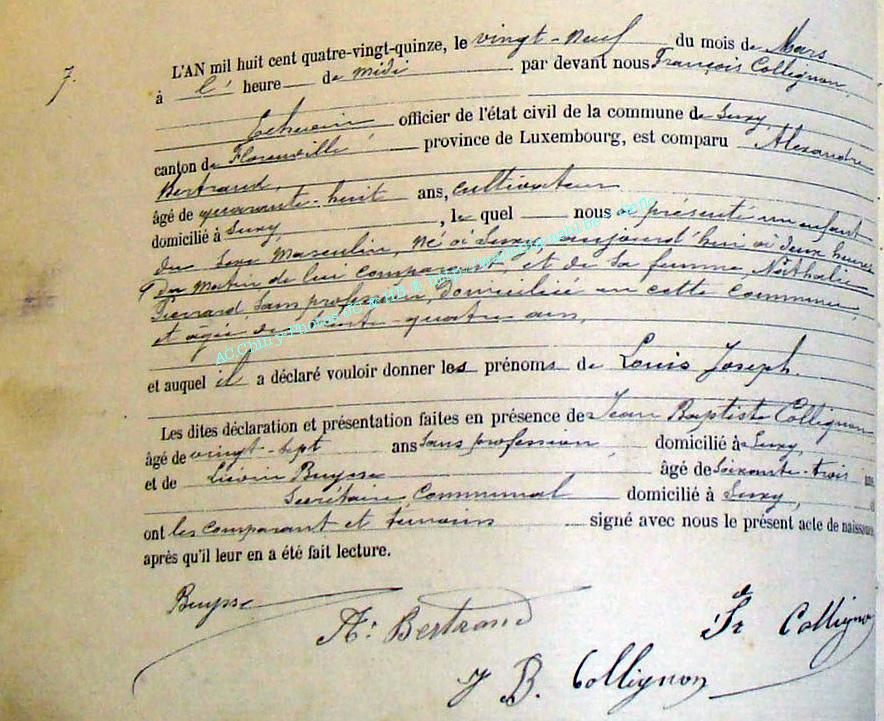 7.
L'AN mil huit cent quatre-vingt-quinze, le vingt-neuf du mois de Mars
à l' heure de midi par devant nous François Collignon,
Echevin officier de l'état civil de la commune de Suxy,
canton de Florenville province de Luxembourg, est comparu Alexandre
Bertrand,
âgé de quarante-huit ans, cultivateur
domicilié à Suxy, le quel nous a présenté un enfant
du sexe Masculin, né à Suxy, aujourd'hui à deux heures
du matin de lui comparant, et de sa femme, Nathalie
Pierrard, sans profession, Domiciliée en cette commune,
et âgée de trente-quatre ans,
et auquel il a déclaré vouloir donner les prénoms de Louis Joseph.
Les dites déclaration et présentation faites en présence de Jean Baptiste Collignon
âgé de vingt-sept ans sans profession, domicilié à Suxy,
et de Liévin Buysse âgé de soixante-trois ans
Secrétaire Communal domicilié à Suxy,
ont les comparant et témoins signé avec nous le présent acte de naissance
après qu'il leur en a été fait lecture.
Buysse
Ax: Bertrand
Fr Collignon
J B. Collignon
AC Chiny Photos OC & HB &